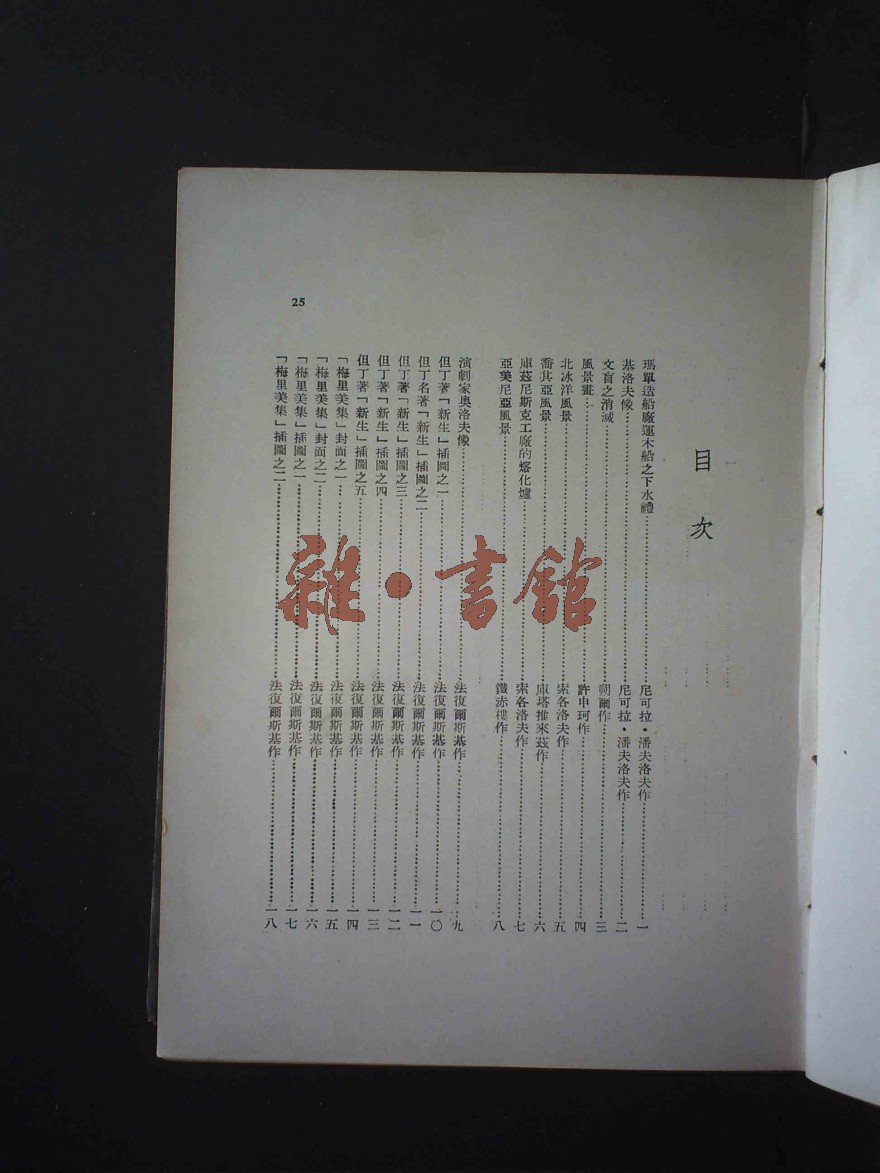 目次
瑪單造船廠運木船之下水禮……尼可拉・潘夫洛夫作……一
基洛夫候……尼可拉・潘夫洛夫作……二
文盲之消滅……朝爾作……三
風景畫……許申珂作……四
北冰洋風景……索各洛夫作……五
喬其亞風景……庫塔推來茲作……六
庫茲尼斯克工廠的熔化爐……索各洛夫作……七
亞美尼亞風景……鐵赤樓作……八
演劇家奧洛夫像……法復爾斯基作……九
但丁著「新生」插圖之一……法復爾斯基作……一〇
但丁名著「新生」插圖之二……法復爾斯基作……一一
但丁著「新生」插圖之三……法復爾斯基作……一二
但丁著「新生」插圖之四……法復爾斯基作……一三
但丁著「新生」插圖之五……法復爾斯基作……一四
「梅里美集」封面之一……法復爾斯基作……一五
「梅里美集」封面之二……法復爾斯基作……一六
「梅里美集」插圖之一……法復爾斯基作……一七
「梅里美集」插圖之二……法復爾斯基作……一八
25
雜・書館